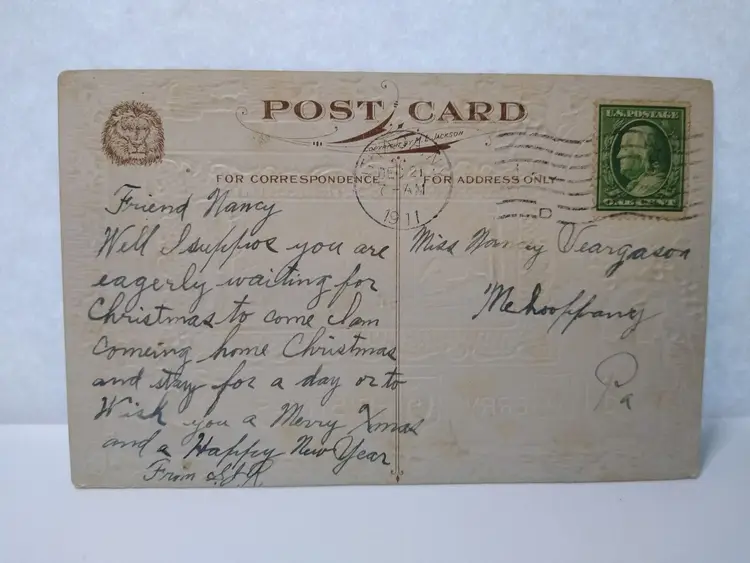 POST CARD
COPYRIGHT BY M. L. JACKSON
FOR CORRESPONDENCE
FOR ADDRESS ONLY
DEC 21
7-AM
1911
D
U.S. POSTAGE
ONE CENT
Friend Nancy
Well I suppos you are
eagerly waiting for
Christmas to come I am
comeing home Christmas
and stay for a day or to
Wish you a Merry Xmas
and a Happy New Year
From
Miss Nancy Veargason
Mehooppany
Pa